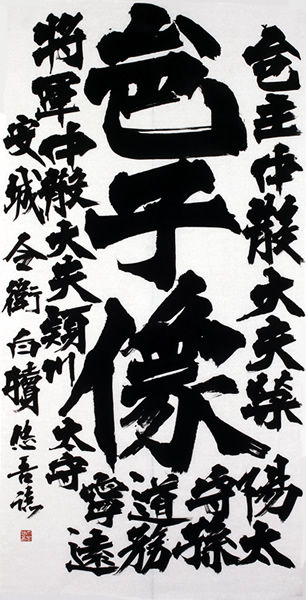 邑子像
邑主中散大夫滎
陽太
守孫
道務
寧遠
將軍中散大夫潁川太守
安城令衛白犢